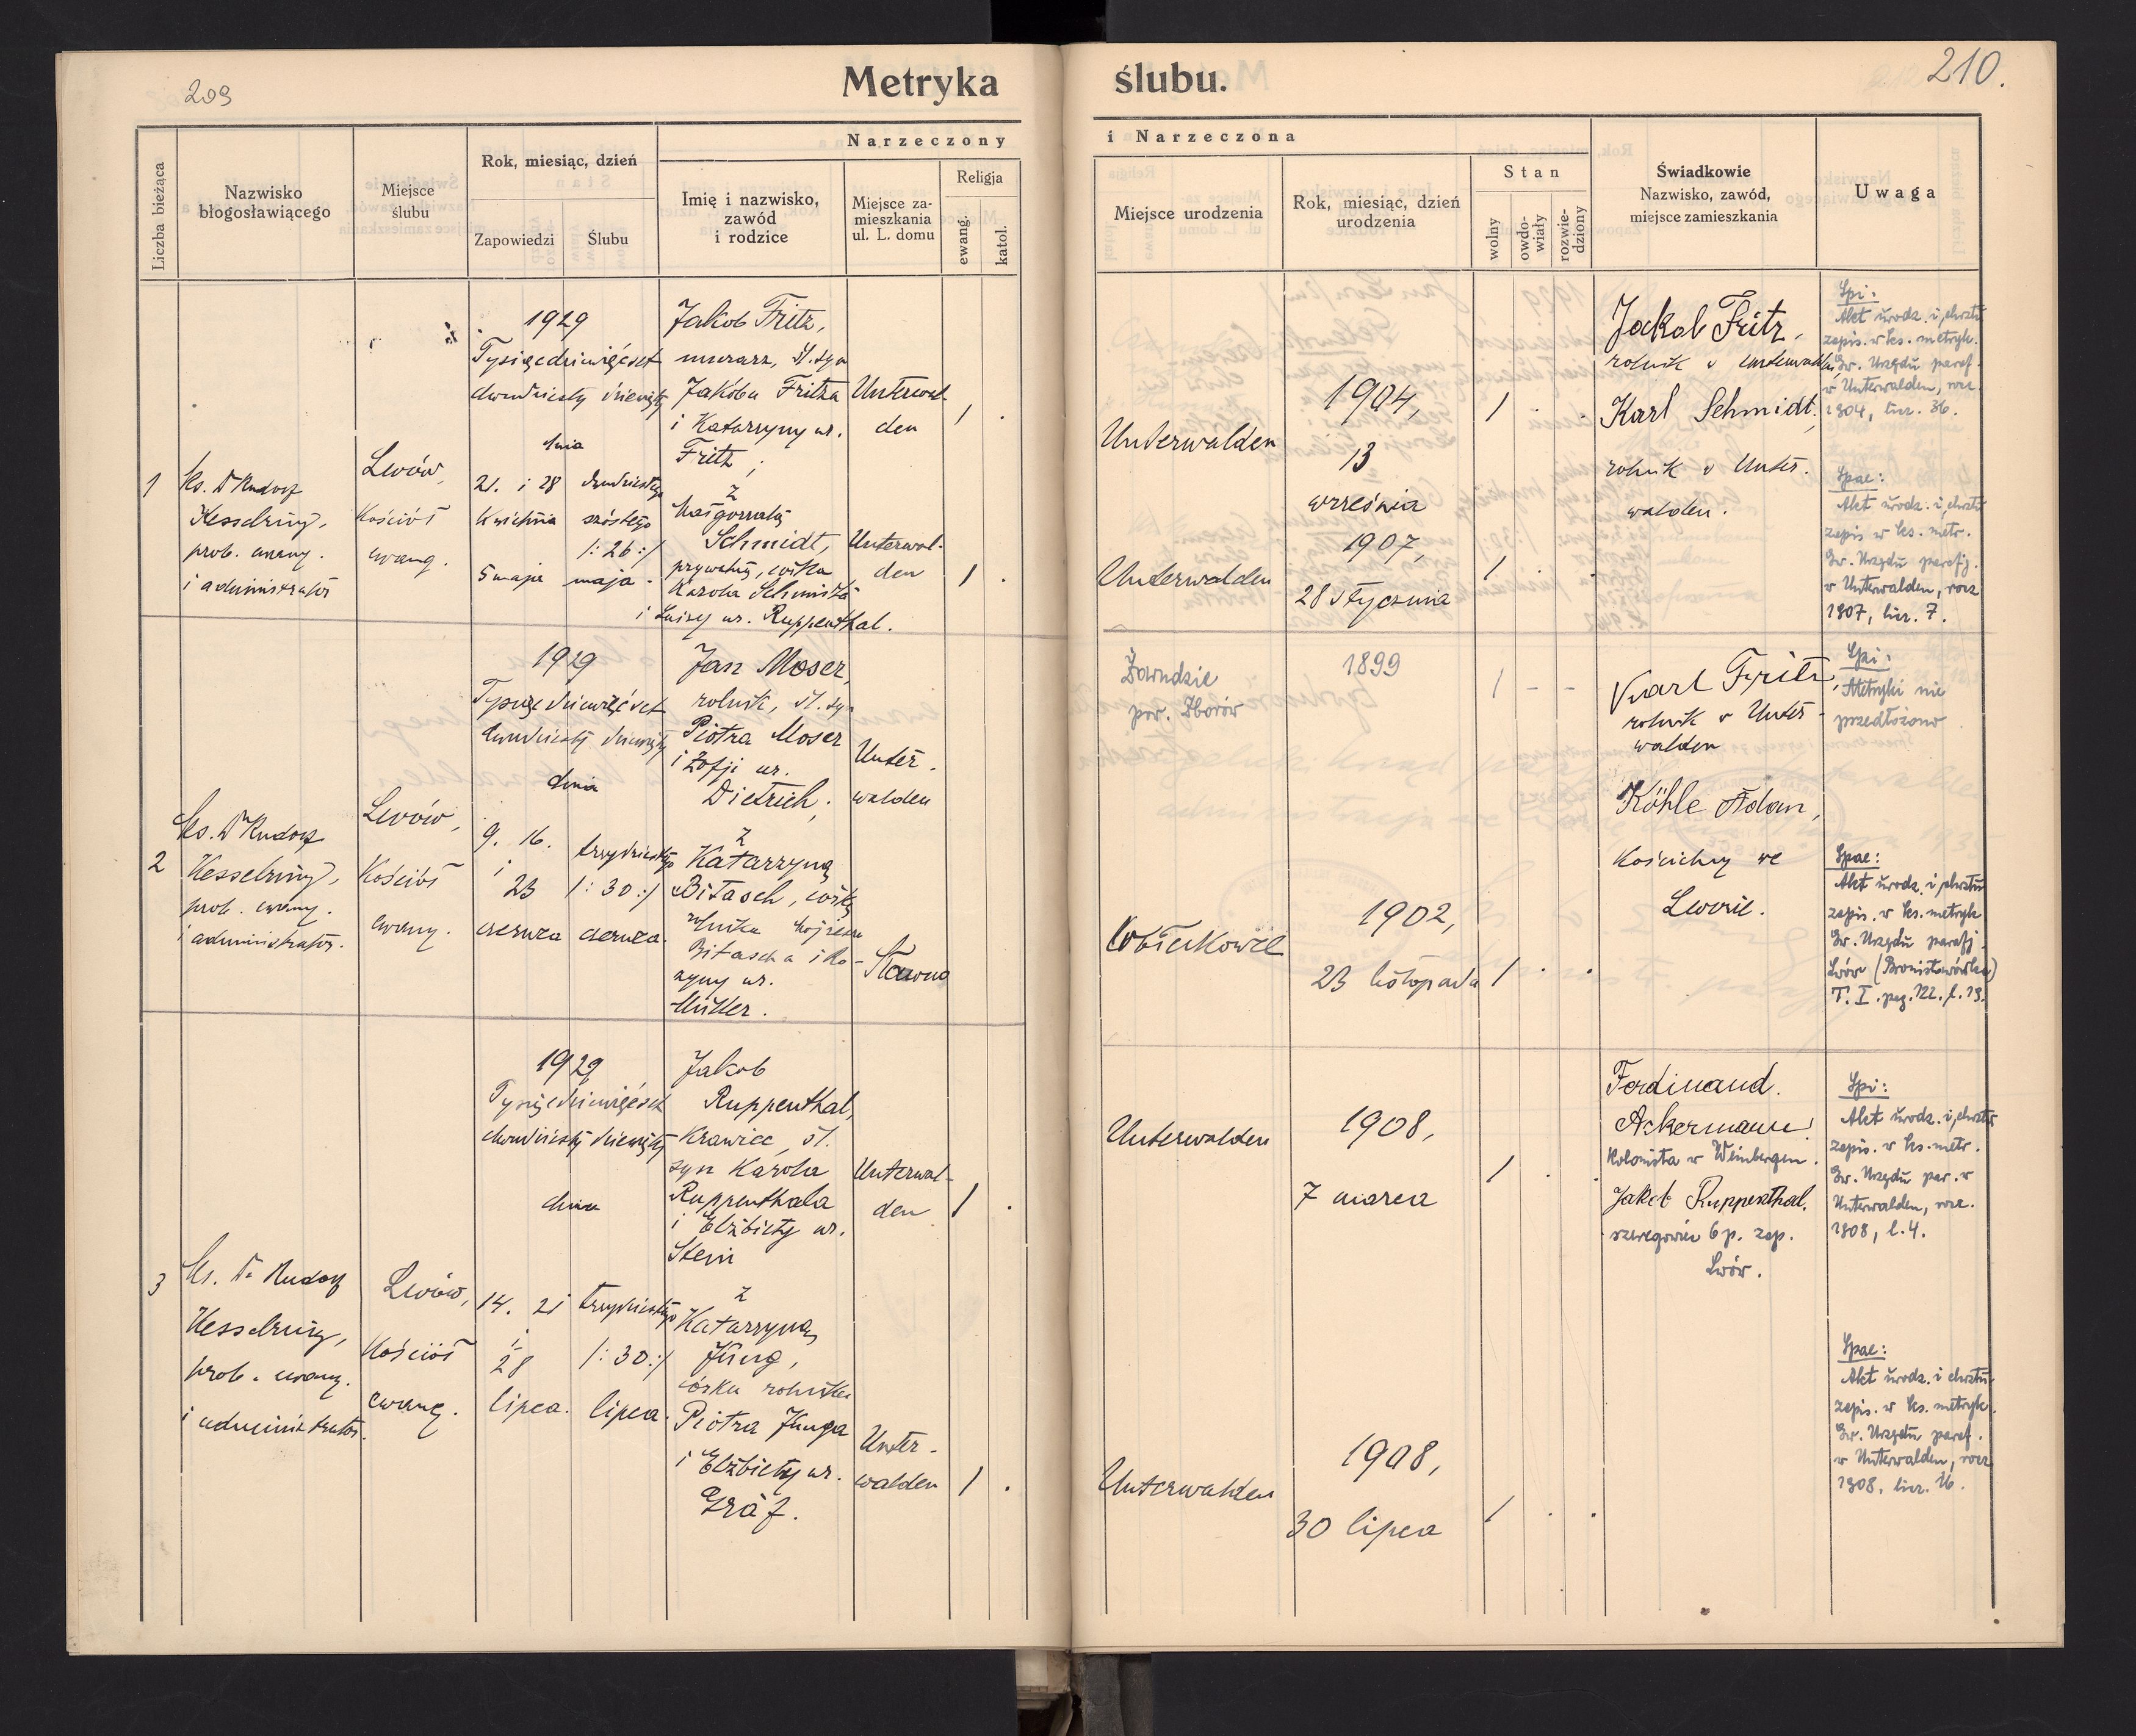 209
Metryka ślubu.
210.
Liczba bieżąca
Nazwisko
błogosławiącego
Miejsce
ślubu
Rok, miesiąc, dzień
Zapowiedzi
Ślubu
Narzeczony
Imię i nazwisko,
zawód
i rodzice
Miejsce za-
mieszkania
ul. L. domu
Religja
ewang.
katol.
i Narzeczona
Miejsce urodzenia
Rok, miesiąc, dzień
urodzenia
Stan
wolny
owdo-
wiały
rozwie-
dziony
Świadkowie
Nazwisko, zawód,
miejsce zamieszkania
Uwaga
1
ks. Dr Rudolf
Kesselring,
prob. ewang.
i administrator
Lwów,
Kościół
ewang.
1929
Tysiącdziewięćset
dwudziesty dziewiąty
dnia
21. i 28
kwietnia
5 maja
dwudziestego
szóstego
/: 26 :/
maja.
Jakob Fritz,
murarz, śl. syn
Jakóba Fritza
i Katarzyny ur.
Fritz;
z
Małgorzatą
Schmidt,
prywatną, córką
Karola Schmidta
i Luizy ur. Ruppenthal.
Unterwal-
den
Unterwal-
den
/ .
/ .
Unterwalden
Unterwalden
1904,
13
września
1907,
28 stycznia
/ . .
/ . .
Jakob Fritz,
rolnik v Unterwalden,
Karl Schmidt,
rolnik v Unter-
walden.
Spi:
Akt urodz. i chrztu
zapis. w ks. metryk.
Ew. Urzędu paraf.
w Unterwalden, rocz.
1904, licz. 36.
Spae:
Akt urodz. i chrztu
zapis w ks. metr.
Ew. Urzędu parafj.
w Unterwalden, rocz
1907, licz. 7.
2
ks. Dr Rudolf
Kesselring,
prob. ewang.
i administrator.
Lwów,
Kościół
ewang.
1929
Tysiącdziewięćset
dwudziesty dziewiąty
dnia
9. 16.
i
23
czerwca
trzydziestego
/: 30 :/
czerwca.
Jan Moser,
rolnik, śl. syn
Piotra Moser
i Zofji ur.
Dietrich;
z
Katarzyną
Bitasch, córką
rolnika
Bitascha i Ro-
zyny ur.
Müller.
Unter-
walden
Stawna
Żawadzie
pow. Zborów
1899
/ - -
1902,
23 listopada
/ . .
Karl Fritz,
rolnik v Unter-
walden
Köhle Adam,
kościelny we
Lwowie.
Spi:
Metryki nie
przedłożono
Spae:
Akt urodz. i chrztu
zapis. w ks. metryk
Ew. Urzędu parafj.
Lwów (Bronisławówka)
T. I. pag. 122. l. 13.
3
ks. Dr Rudolf
Kesselring,
prob. ewang.
i administrator.
Lwów,
Kościół
ewang.
1929
Tysiącdziewięćset
dwudziesty dziewiąty
dnia
14. 21
i
28
lipca.
trzydziestego
/: 30 :/
lipca.
Jakob
Ruppenthal,
krawiec, śl.
syn Karola
Ruppenthala
i Elżbiety ur.
Stein
z
Katarzyną
Jung,
córką rolnika
Piotra Junga
i Elżbiety ur.
Gräf.
Unterwal-
den
Unter-
walden
/ .
/ .
Unterwalden
Unterwalden
1908,
7 marca
1908,
30 lipca
/ . .
/ . .
Ferdinand
Ackermann
kolonista w Weinbergen.
Jakob Ruppenthal,
szeregowiec 6 p. zap.
Lwów.
Spi:
Akt urodz. i chrztu
zapis. w ks. metr.
Ew. Urzędu par. w
Unterwalden, rocz.
1908, l. 4.
Spae:
Akt urodz. i chrztu
zapis. w ks. metryk.
Ew. Urzędu paraf.
w Unterwalden, rocz
1908. licz. 16.